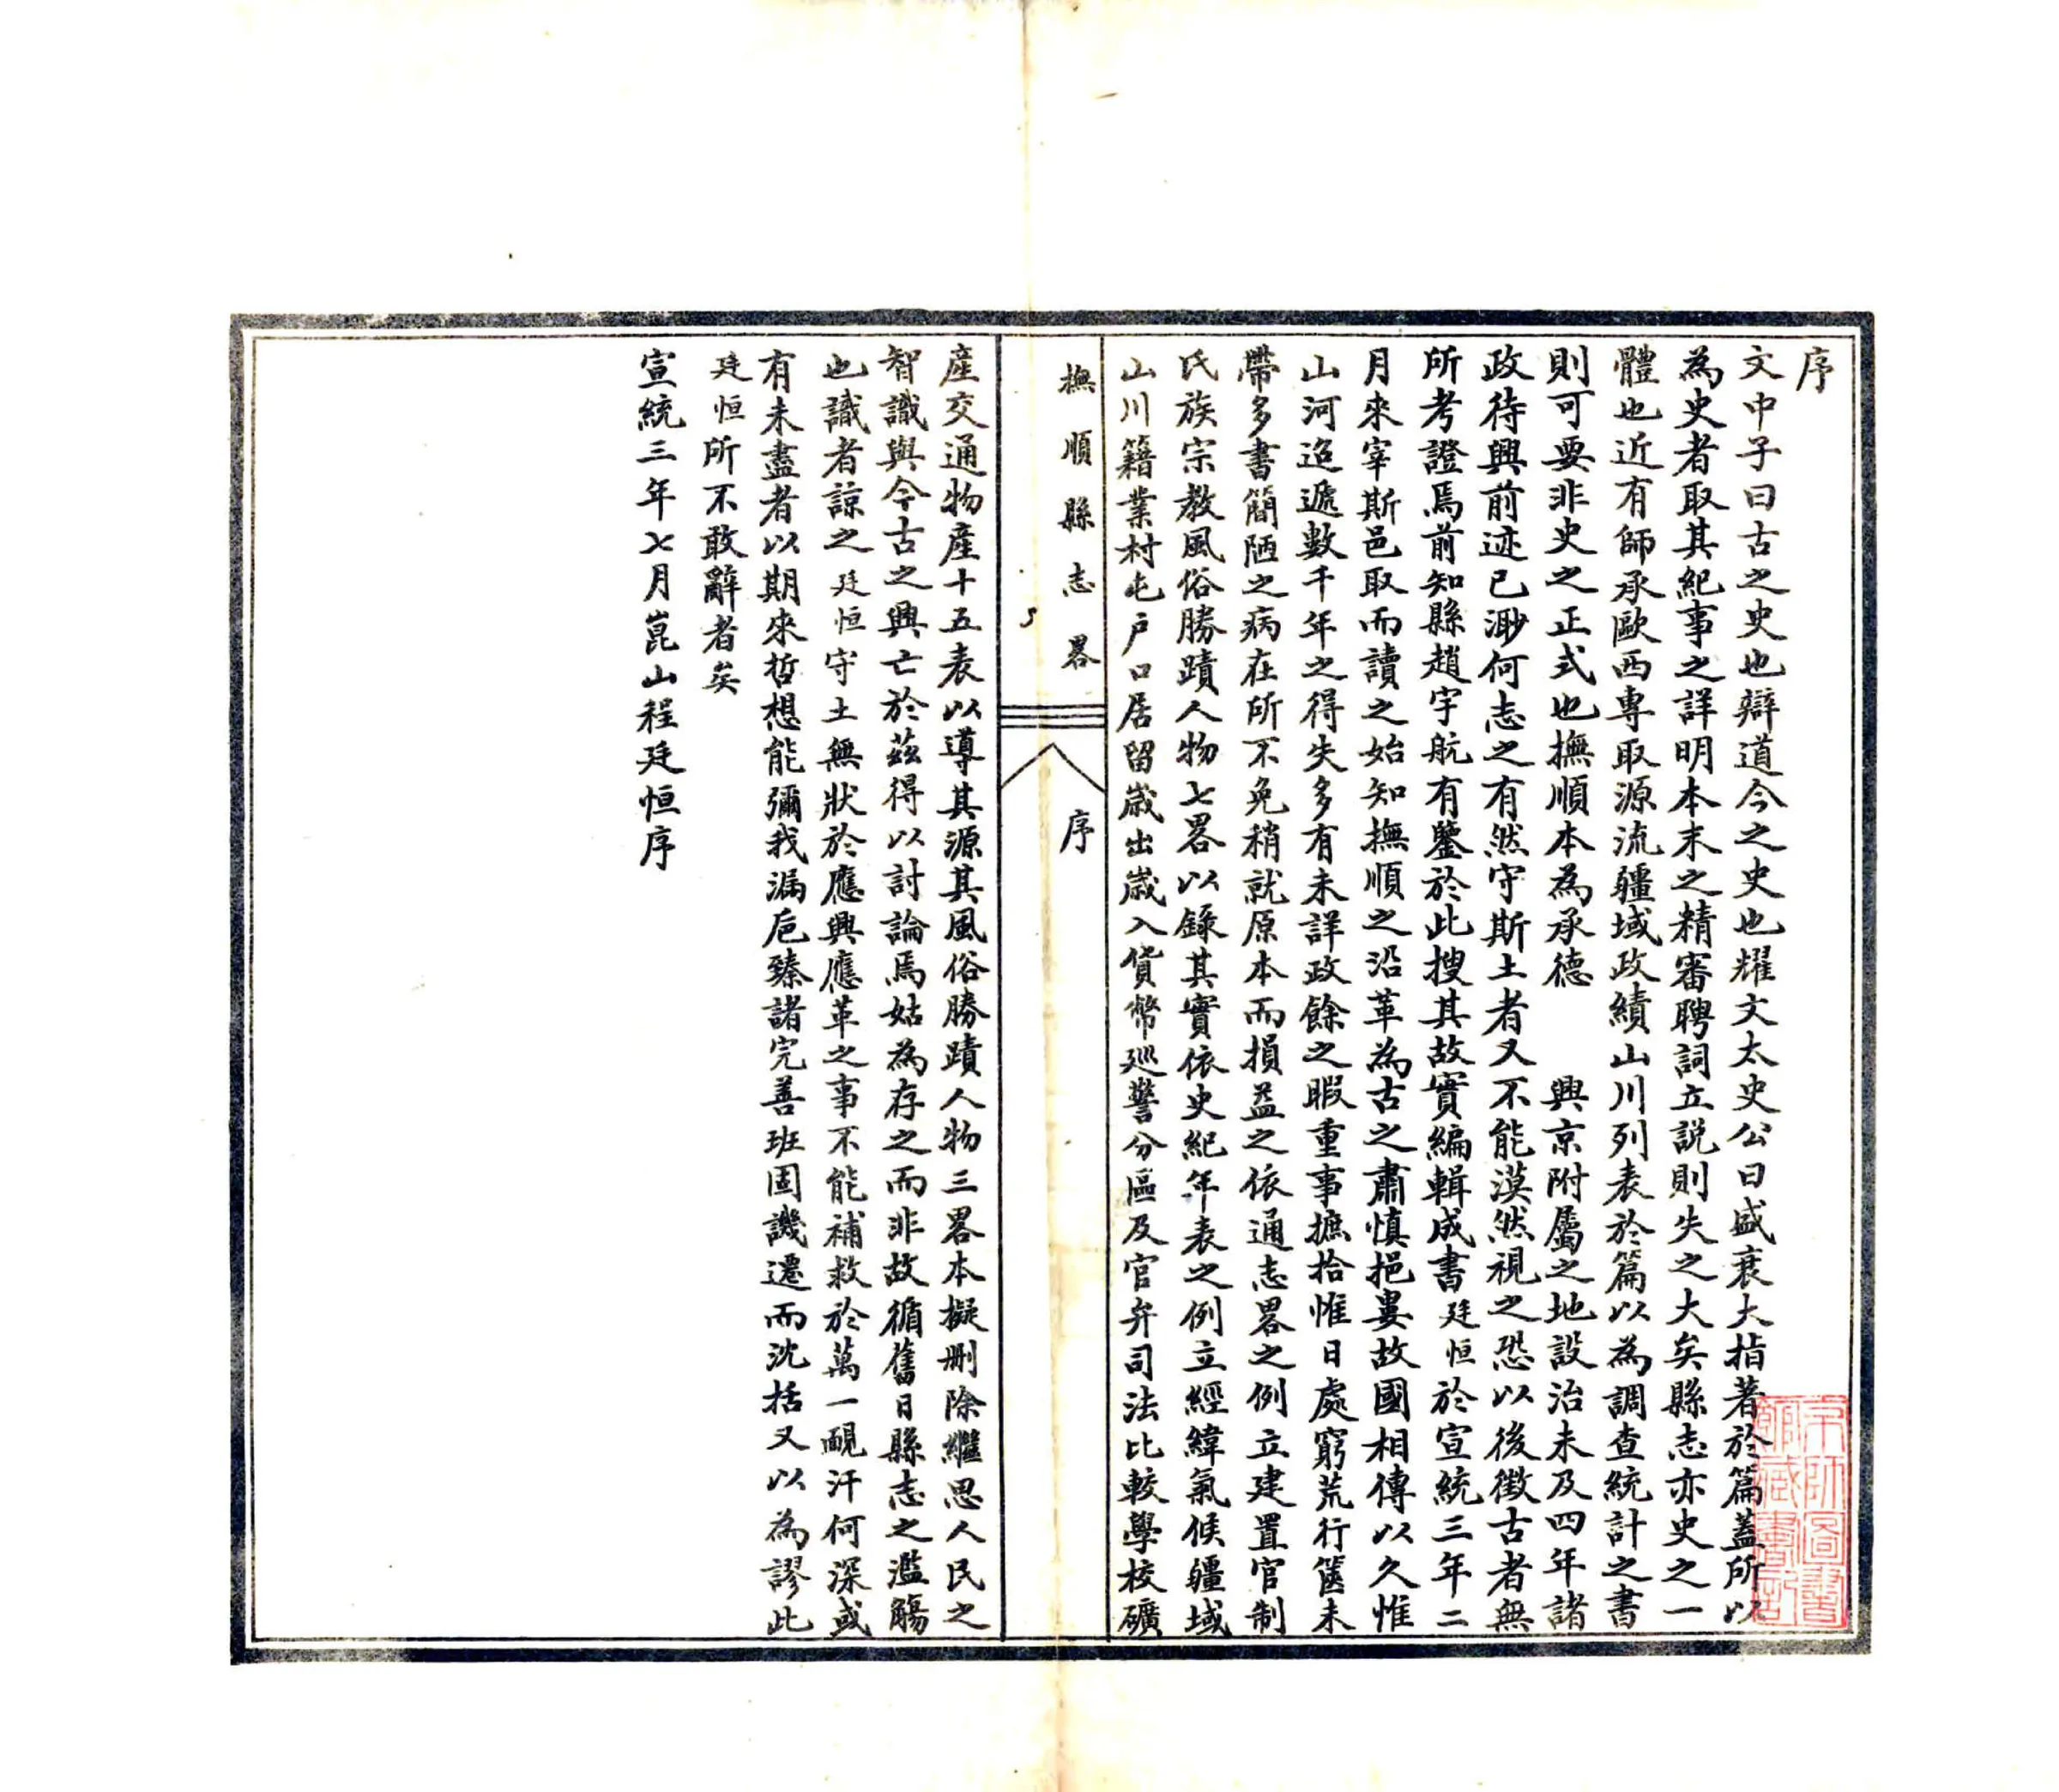 序
文中子曰古之史也辯道今之史也耀文太史公曰盛衰大指著於篇蓋所以
為史者取其紀事之詳明本末之精審聘詞立説則失之大矣縣志亦史之一
體也近有師承歐西專取源流疆域政績山川列表於篇以為調查統計之書
則可要非史之正式也撫順本為承德 興京附屬之地設治未及四年諸
政待興前迹已渺何志之有然守斯土者又不能漠然視之恐以後徴古者無
所考證焉前知縣趙宇航有鑒於此搜其故實編輯成書廷恒於宣統三年二
月來宰斯邑取而讀之始知撫順之沿革為古之肅慎挹婁故國相傳以久惟
山河迢遞數千年之得失多有未詳政餘之暇重事摭拾惟日處窮荒行篋未
帶多書簡陋之病在所不免稍就原本而損益之依通志畧之例立建置官制
氏族宗教風俗勝蹟人物七畧以錄其實依史紀年表之例立經緯氣候疆域
山川籍業村屯戶口居留歲出歲入貨幣巡警分區及官弁司法比較學校礦
撫順縣志畧
序
產交通物產十五表以導其源其風俗勝蹟人物三畧本擬刪除繼思人民之
智識與今古之興亡於茲得以討論焉姑為存之而非故循舊日縣志之濫觴
也識者諒之廷恒守土無狀於應興應革之事不能補救於萬一覼汗何深或
有未盡者以期來哲想能彌我漏巵臻諸完善班固譏遷而沈括又以為謬此
廷恒所不敢辭者矣
宣統三年七月崑山程廷恒序
京師圖書
館藏書記